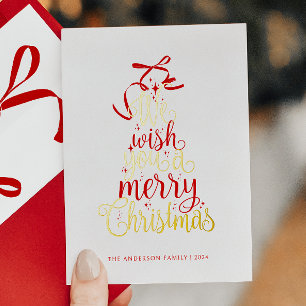 We
wish
you a
merry
Christmas
THE ANDERSON FAMILY | 2024